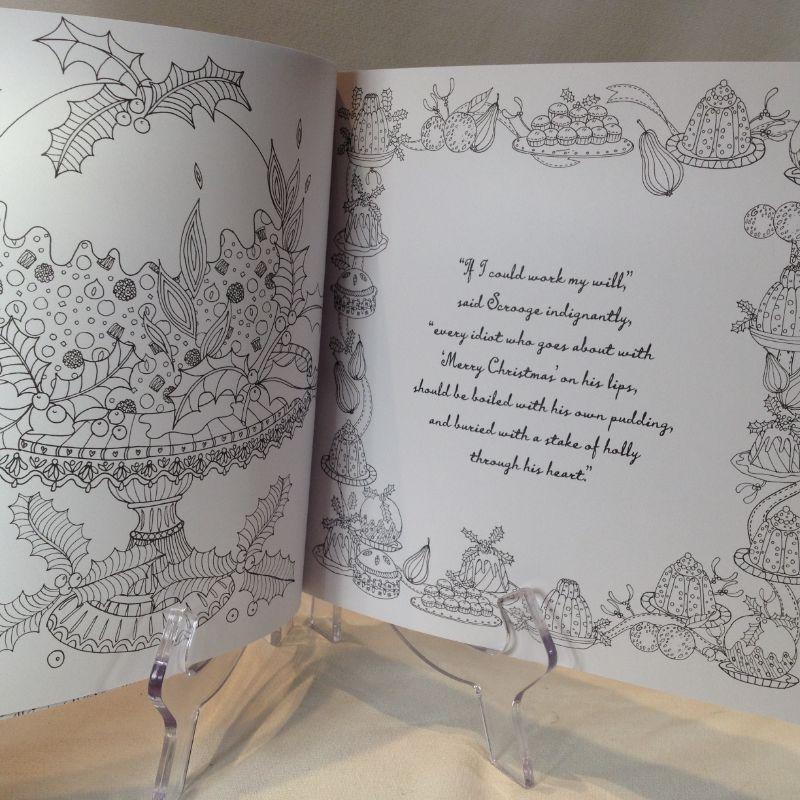 “If I could work my will,”
said Scrooge indignantly,
“every idiot who goes about with
‘Merry Christmas’ on his lips,
should be boiled with his own pudding,
and buried with a stake of holly
through his heart.”